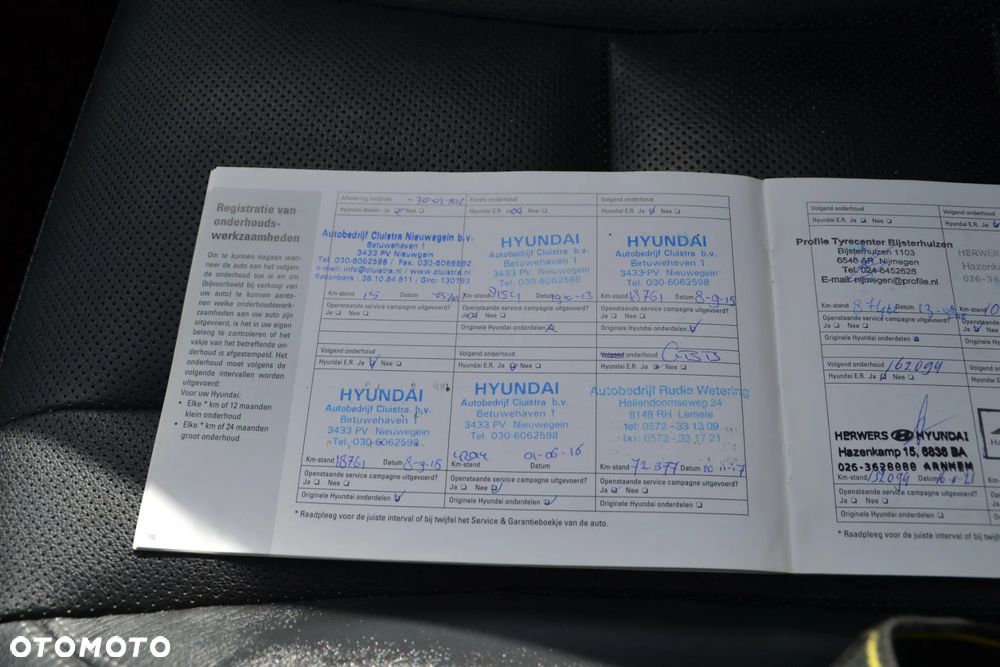 Registratie van
onderhouds-
werkzaamheden
Om te kunnen nagaan wan-
neer de auto aan het volgen-
de onderhoud toe is en om
(bijvoorbeeld bij verkoop van
uw auto) te kunnen aanto-
nen welke onderhoudswerk-
zaamheden aan uw auto zijn
uitgevoerd, is het in uw eigen
belang te controleren of het
vakje van het betreffende on-
derhoud is afgestempeld. Het
onderhoud moet volgens de
volgende intervallen worden
uitgevoerd:
Voor uw Hyundai:
• Elke * km of 12 maanden
klein onderhoud
• Elke * km of 24 maanden
groot onderhoud
10
Aflevering controle
Hyundai dealer Ja Nee
Autobedrijf Cluistra Nieuwegein b.v.
Betuwehaven 1
3433 PV Nieuwegein
Tel. 030-6062598 / Fax. 030-6066692
e-mail: info@cluistra.nl / www.cluistra.nl
Rabobank : 38.10.64.611 / Giro: 130793
Km-stand 15 Datum
Openstaande service campagne uitgevoerd?
Ja Nee
Eerste onderhoud
Hyundai E.R. Ja Nee
HYUNDAI
Autobedrijf Cluistra b.v.
Betuwehaven 1
3433 PV Nieuwegein
Tel. 030-6062598
Km-stand 8154 Datum
Openstaande service campagne uitgevoerd?
Ja Nee
Originele Hyundai onderdelen
Volgend onderhoud
Hyundai E.R. Ja Nee
HYUNDAI
Autobedrijf Cluistra b.v.
Betuwehaven 1
3433 PV Nieuwegein
Tel. 030-6062598
Km-stand 18761 Datum 8-9-15
Openstaande service campagne uitgevoerd?
Ja Nee
Originele Hyundai onderdelen
Volgend onderhoud
Hyundai E.R. Ja Nee
HYUNDAI
Autobedrijf Cluistra b.v.
Betuwehaven 1
3433 PV Nieuwegein
Tel. 030-6062598
Km-stand 18761 Datum 8-9-15
Openstaande service campagne uitgevoerd?
Ja Nee
Originele Hyundai onderdelen
Volgend onderhoud
Hyundai E.R. Ja Nee
HYUNDAI
Autobedrijf Cluistra b.v.
Betuwehaven 1
3433 PV Nieuwegein
Tel. 030-6062598
Km-stand Datum 01-06-16
Openstaande service campagne uitgevoerd?
Ja Nee
Originele Hyundai onderdelen
Volgend onderhoud
Hyundai E.R. Ja Nee
Autobedrijf Rudie Wetering
Hellendoornseweg 24
8148 RH Lemele
tel: 0572 - 33 13 09
fax: 0572 - 33 17 21
Km-stand 72.377 Datum
Openstaande service campagne uitgevoerd?
Ja Nee
Originele Hyundai onderdelen
* Raadpleeg voor de juiste interval of bij twijfel het Service & Garantieboekje van de auto.
Volgend onderhoud
Hyundai E.R. Ja Nee
Profile Tyrecenter Bijsterhuizen
Bijsterhuizen 1103
6546 AR Nijmegen
Tel. 024-6452626
E-mail: nijmegen@profile.nl
Km-stand Datum
Openstaande service campagne uitgevoerd?
Ja Nee
Originele Hyundai onderdelen
Volgend onderhoud
Hyundai E.R. Ja
HERWERS
Hazenka
026-36
Km-stand
Openstaande
Ja Nee
Originele Hyund
Volgend onderhoud 162094
Hyundai E.R. Ja Nee
HERWERS HYUNDAI
Hazenkamp 15, 6836 BA
026-3628888 ARNHEM
Km-stand 152094 Datum
Openstaande service campagne uitgevoerd?
Ja Nee
Originele Hyundai onderdelen
* Raadpleeg voor de juiste interval of bij twijf
OTOMOTO